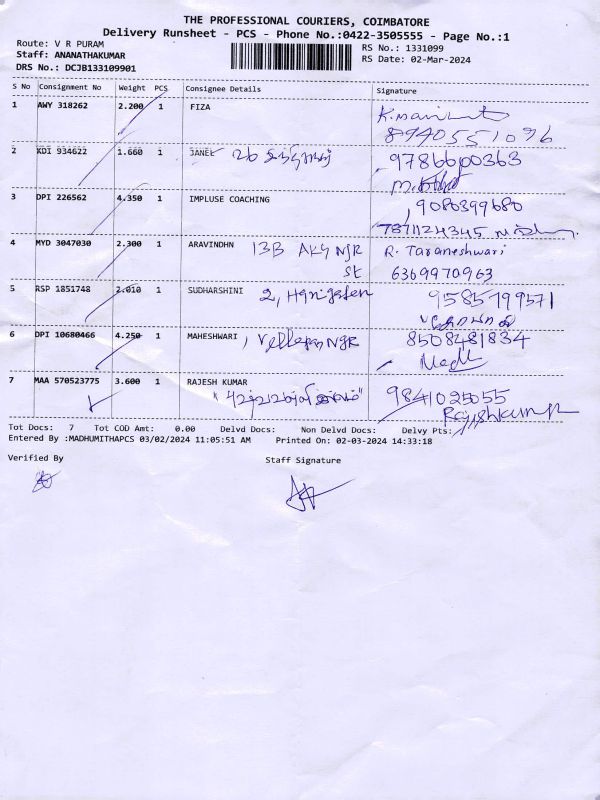 THE PROFESSIONAL COURIERS, COIMBATORE
Delivery Runsheet - PCS - Phone No.:0422-3505555 - Page No.:1
Route: V R PURAM
Staff: ANANATHAKUMAR
DRS No.: DCJB133109901
RS No.: 1331099
RS Date: 02-Mar-2024
S No Consignment No Weight PCS Consignee Details Signature
1 AWY 318262 2.200 1 FIZA
8940551096
2 KDI 934622 1.660 1 JANET 26 9786600363
3 DPI 226562 4.350 1 IMPLUSE COACHING , 9080399680
7871124345
4 MYD 3047030 2.300 1 ARAVINDHN 13B AKG NJR R. Taraneshwari
St 6369970963
5 RSP 1851748 2.010 1 SUDHARSHINI 2, 9585799571
6 DPI 10680466 4.250 1 MAHESHWARI , NGR 8508481834
7 MAA 570523775 3.600 1 RAJESH KUMAR 9841025055
Rajeshkumar
Tot Docs: 7 Tot COD Amt: 0.00 Delvd Docs: Non Delvd Docs: Delvy Pts:
Entered By :MADHUMITHAPCS 03/02/2024 11:05:51 AM Printed On: 02-03-2024 14:33:18
Verified By Staff Signature